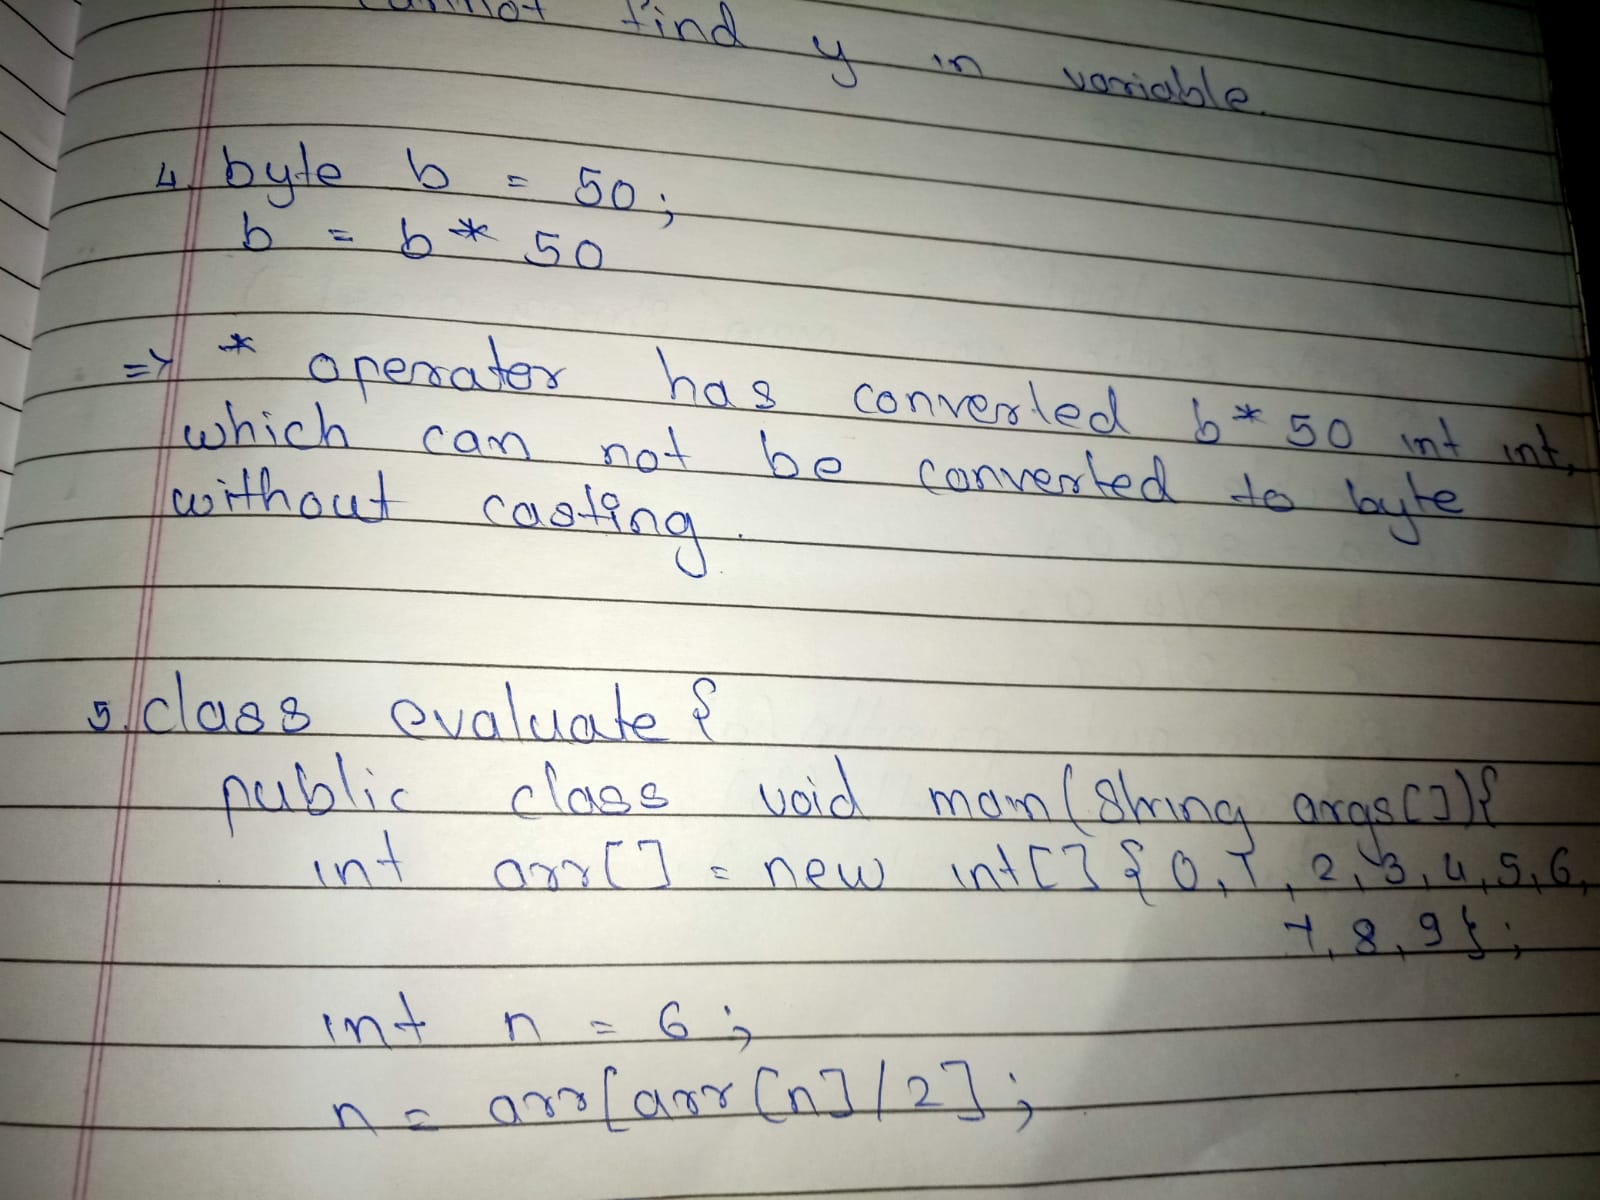 cannot find y in variable.
4. byte b = 50;
b = b * 50
=> * operator has converted b * 50 int int,
which can not be converted to byte
without casting.
5. class evaluate {
public class void main (String args[]){
int arr[] = new int[] { 0, 1, 2, 3, 4, 5, 6,
7, 8, 9 };
int n = 6;
n = arr[arr[n]/2];